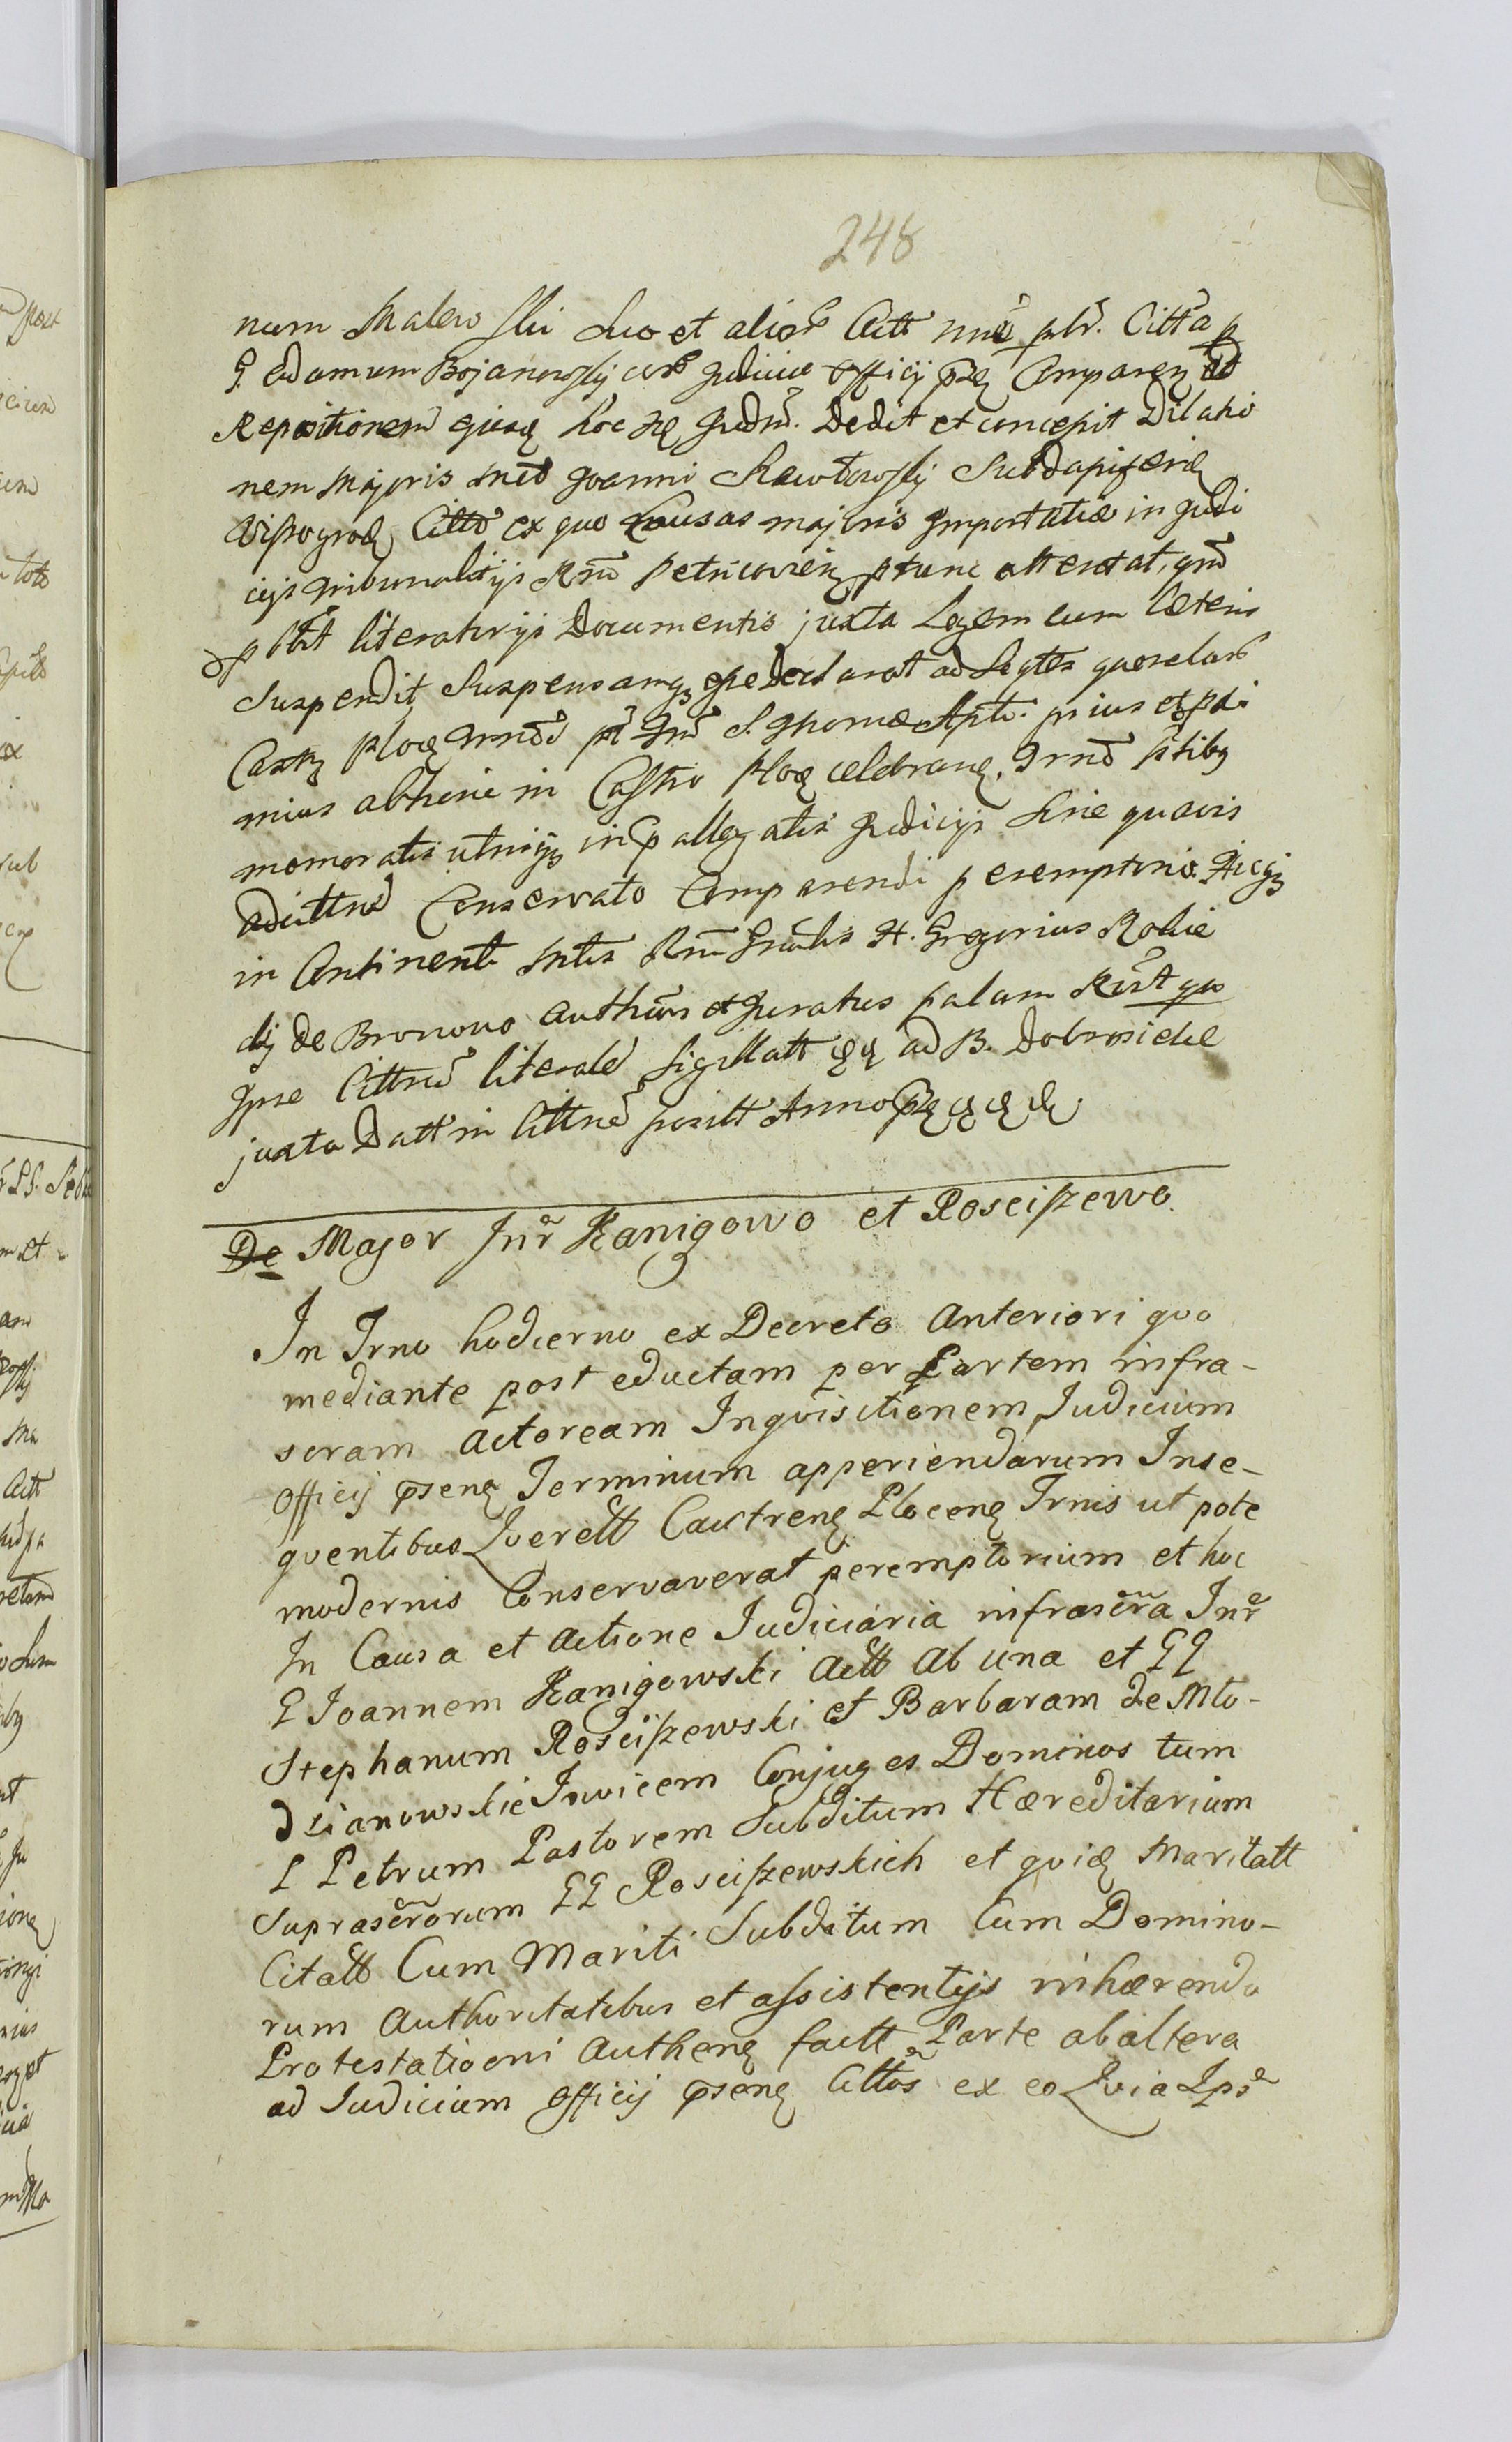 248
num Malewski Suo et alior Actt nne pltr. Citta p
G. Adamum Bojanowskij cora Judicio officij pñs Comparen ad
Repositionem ejusq hoc se Judm. Dedit et concepit Dilatio
nem Majoris Mco Joanni Rawtowskij Subdapifero
Wissogrod Citto ex quo Causas majoris Importantiæ in Judi
cijs Tribunalitijs Rni Petricovien ptunc attentat, qnd
ptbt literatorijs Documentis juxta Legem cum Cæteris
Suspendit, Suspensamq esse declarat ad Sqtes querelar
Castr Ploc Trnos pt Fm S. Thomæ Aptli prius et proxi
mius abhinc in Castro Ploc celebran. Trnō ptibq
memoratis utrisq in pallegatis Judicijs Sine quavis
adcittne Conservato Comparendi peremptorio. Hicq
in Continenti Mtis Rni Gnalis H. Gregorius Rokic
kij de Bronowo authen et Juratus palam Rcvt quo
Ipse Cittnē literalē Sigillatt ad B. Dobrosielice
juxta Datt in Cittnē posuit Anno
De Major Inr Kanigowo et Rosciszewo.
In Trno hodierno ex Decreto Anteriori quo
mediante post eductam per Partem infra-
scram Actoream Inqvisitionem Judicium
Officij pseng Terminum apperiendarum Inse-
qventibus Qverell Castreng Ploceng Trnis ut pote
modernis Conservaverat peremptorium et hoc
In Causa et Actione Judiciaria infrascra Inr
G Joannem Kanigowski Actt Ab una et GG
Stephanum Rosciszewski et Barbaram de Mło-
dzianowskie Invicem Conjuges Dominos tum
L Petrum Pastorem Subditum Hæreditarium
Suprascrorum GG Rosciszewskich et qviq Maritatt
Citatt Cum Mariti Subditum Cum Domino-
rum Authoritatibus et assistentijs inhærendo
Protestationi Autheng factt Parte ab altera
ad Judicium Officij pseng Cittos ex eo Qvia Ips